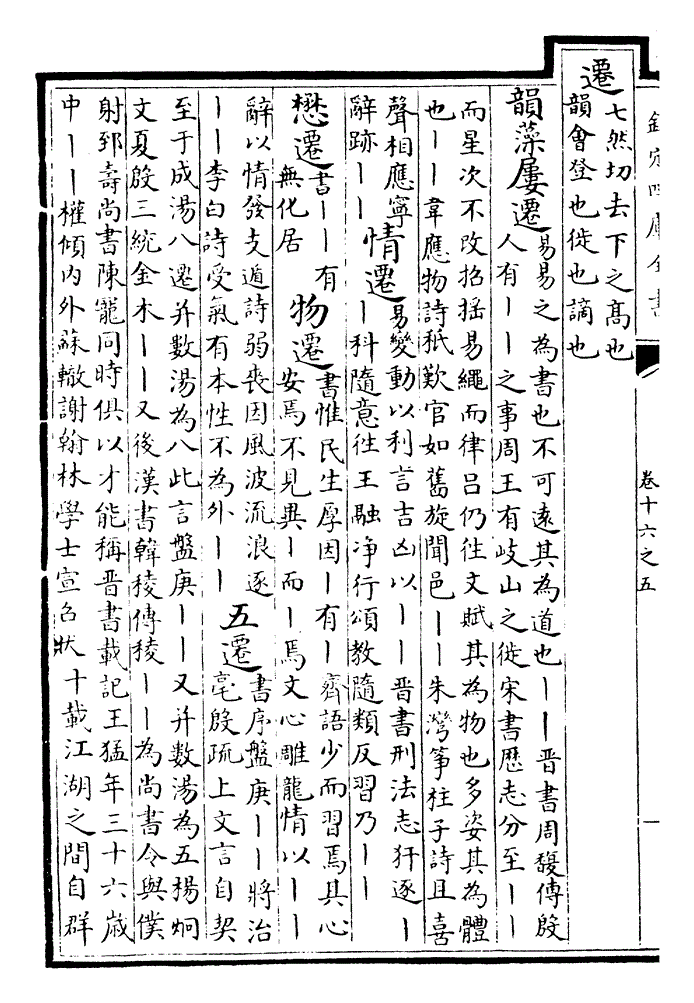 欽定四庫全書
卷十六之五
一
遷
七然切去下之髙也
韻會登也徙也謫也
韻藻屢遷
易易之為書也不可逺其為道也丨丨晉書周馥傳殷
人有丨丨之事周王有岐山之徙宋書歷志分至丨丨
而星次不改招揺易繩而律吕仍徃文賦其為物也多姿其為體
也丨丨韋應物詩秪歎官如舊旋聞邑丨丨朱灣筝柱子詩且喜
聲相應寧
辭跡丨丨
情遷
易變動以利言吉凶以丨丨晉書刑法志犴逐丨
丨科隨意徃王融浄行頌教隨類反習乃丨丨
懋遷
書丨丨有
無化居
物遷
書惟民生厚因丨有丨齊語少而習焉其心
安焉不見異丨而丨焉文心雕龍情以丨丨
辭以情發支遁詩弱喪因風波流浪逐
丨丨李白詩受氣有本性不為外丨丨
五遷
書序盤庚丨丨將治
亳殷疏上文言自契
至于成湯八遷并數湯為八此言盤庚丨丨又并數湯為五楊炯
文夏殷三統金木丨丨又後漢書韓稜傳稜丨丨為尚書令與僕
射郅壽尚書陳寵同時俱以才能稱晉書載記王猛年三十六歲
中丨丨權傾内外蘇轍謝翰林學士宣召狀十載江湖之間自群